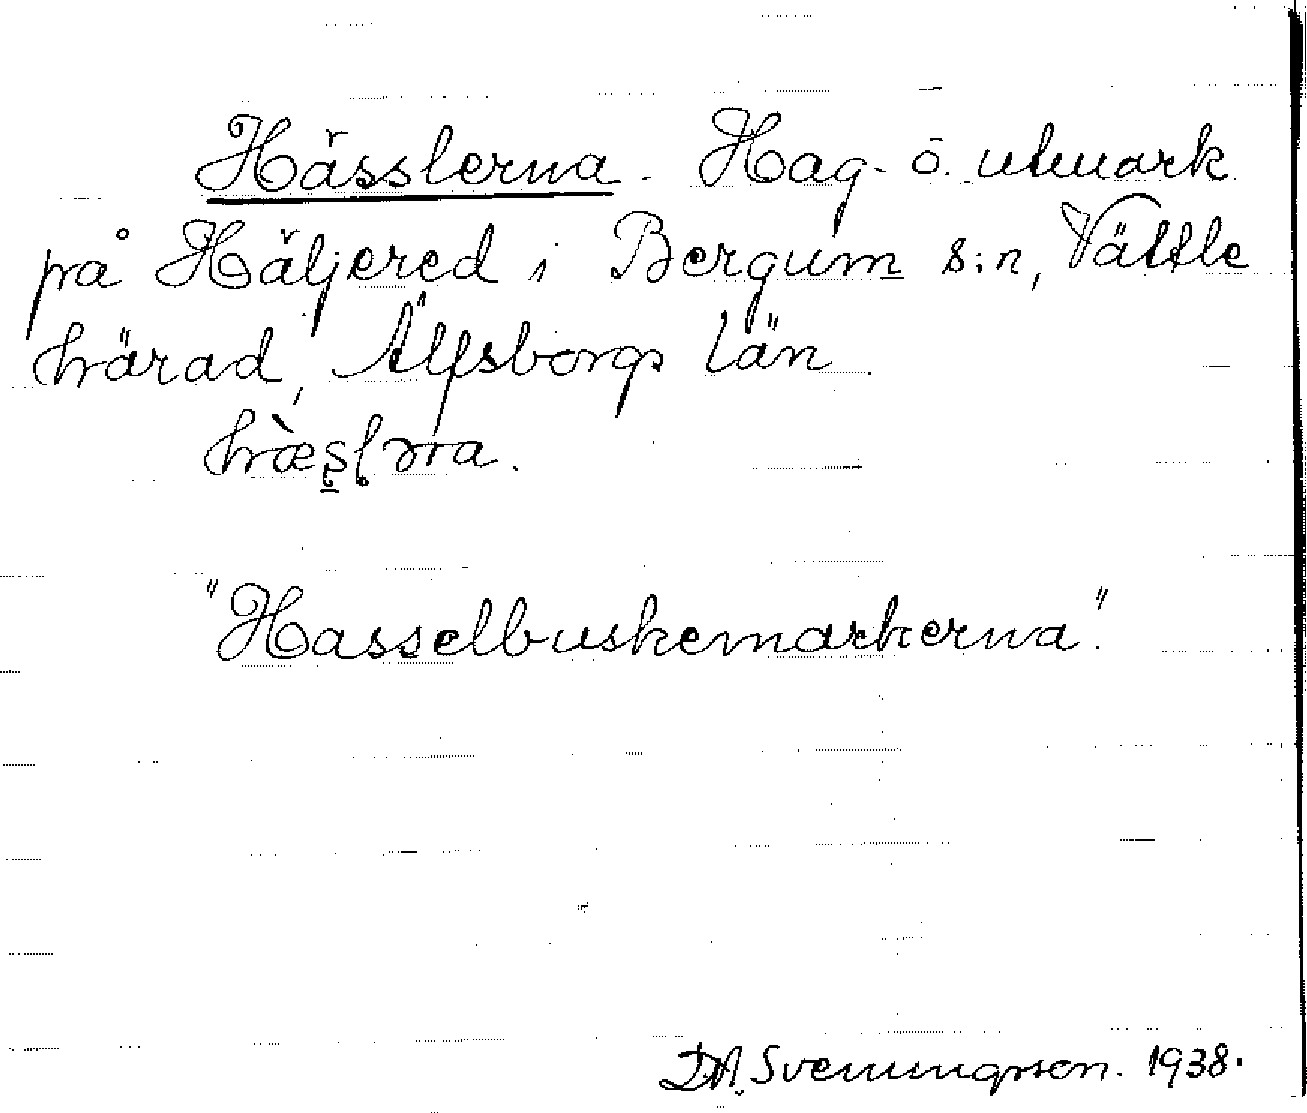 Hässlerna. Hag- o. utmark
på Häljered i Bergum s:n, Vättle
härad, Älfsborgs län.
"Hasselbuskemarkerna".
Svenningsson. 1938.